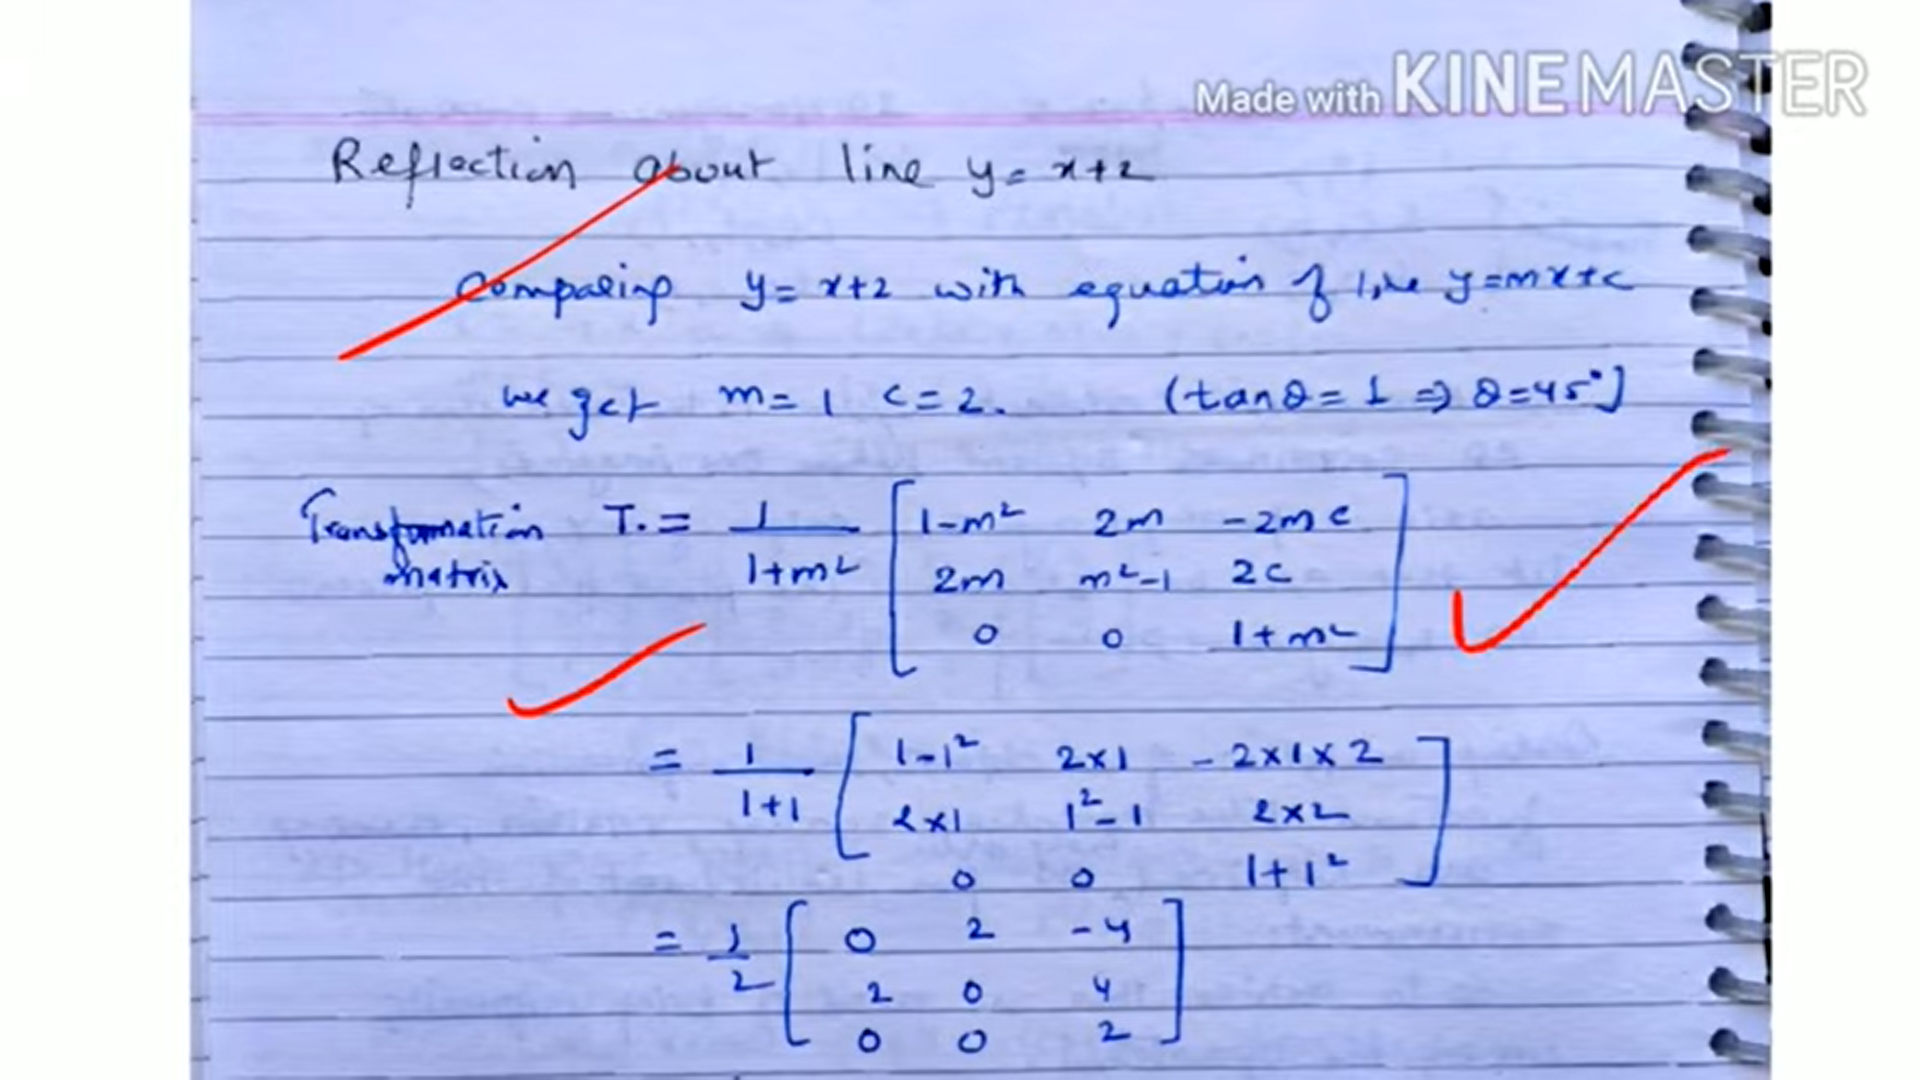 Made with KINEMASTER
Reflection about line y = x+2
Comparing y = x+2 with equation of line y = mx+c
we get m = 1 c = 2. (tanθ = 1 ⇒ θ = 45°]
Transformation matrix T. = 1/1+m² [1-m² 2m -2mc
2m m²-1 2c
0 0 1+m²]
= 1/1+1 [1-1² 2×1 -2×1×2
2×1 1²-1 2×2
0 0 1+1²]
= 1/2 [0 2 -4
2 0 4
0 0 2]